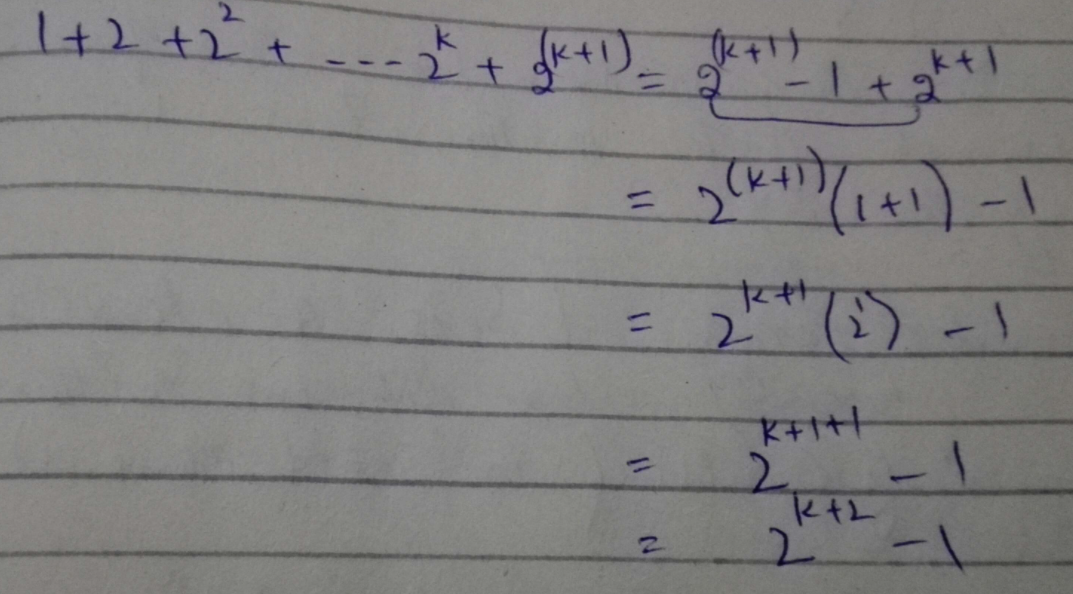 1+2+2² + ---- 2^k + 2^(k+1) = 2^(k+1) - 1 + 2^k+1
= 2^(k+1) (1+1) - 1
= 2^k+1 (2¹) - 1
= 2^k+1+1 - 1
= 2^k+2 - 1